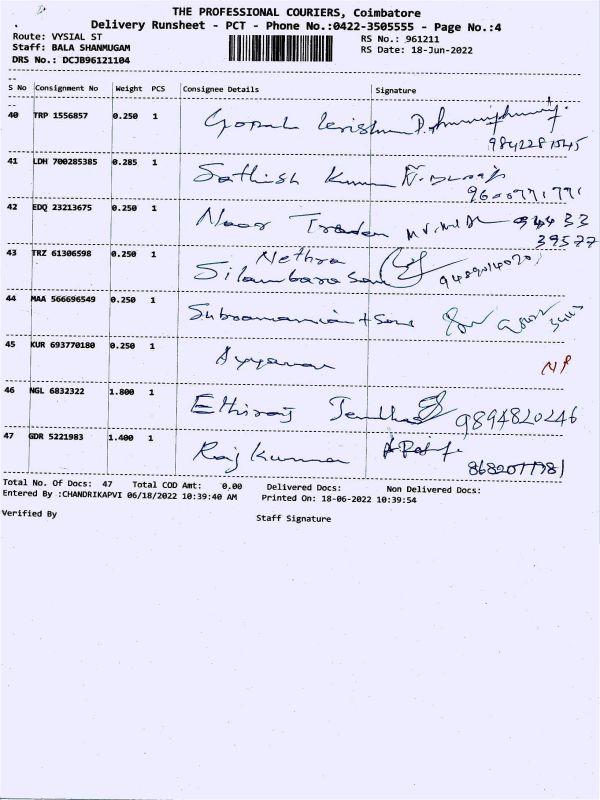 THE PROFESSIONAL COURIERS, Coimbatore
Delivery Runsheet - PCT - Phone No.:0422-3505555 - Page No.:4
Route: VYSIAL ST RS No.: 961211
Staff: BALA SHANMUGAM RS Date: 18-Jun-2022
DRS No.: DCJB96121104
S No Consignment No Weight PCS Consignee Details Signature
40 TRP 1556857 0.250 1 Gopal Krishna
9842281545
41 LDH 700285385 0.285 1 Sathish Kumar
9600771771
42 EDQ 23213675 0.250 1 Noor Traders 94433
39577
43 TRZ 61306598 0.250 1 Nethra
Silambarasan
44 MAA 566696549 0.250 1 Subramanian + Sons
45 KUR 693770180 0.250 1 Ayyanar NP
46 NGL 6832322 1.800 1 Ethiraj 9894820246
47 GDR 5221983 1.400 1 Raj Kumar
Total No. Of Docs: 47 Total COD Amt: 0.00 Delivered Docs: Non Delivered Docs:
Entered By :CHANDRIKAPVI 06/18/2022 10:39:40 AM Printed On: 18-06-2022 10:39:54
Verified By Staff Signature